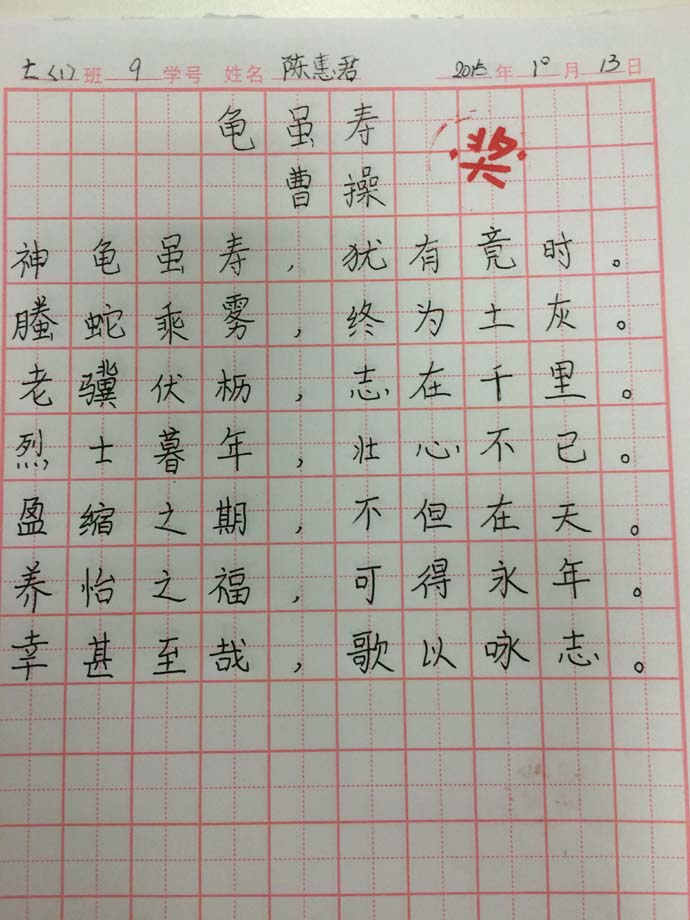 七(1)班 9 学号 姓名 陈惠君 2015年 10月 13日
龟虽寿
奖
曹操
神龟虽寿,犹有竟时。
螣蛇乘雾,终为土灰。
老骥伏枥,志在千里。
烈士暮年,壮心不已。
盈缩之期,不但在天。
养怡之福,可得永年。
幸甚至哉,歌以咏志。